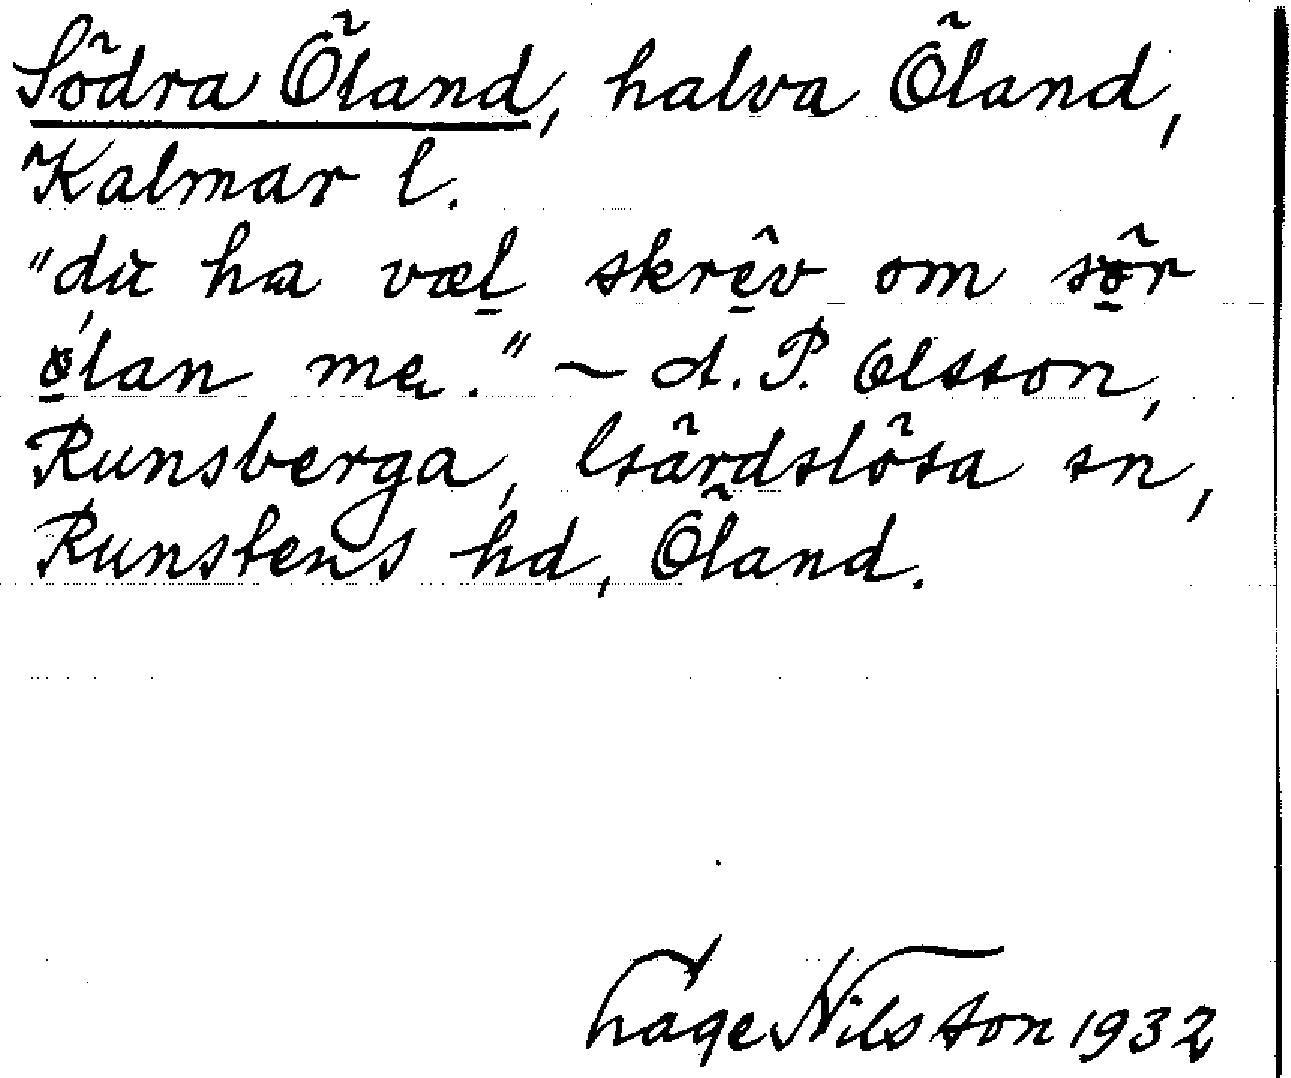 Södra Öland, halva Öland,
Kalmar l.
"du ha væl skrêv om sör
ölan me." — A. P. Olsson,
Runsberga, Gärdslösa sn,
Runstens hd, Öland.
Lage Nilsson 1932